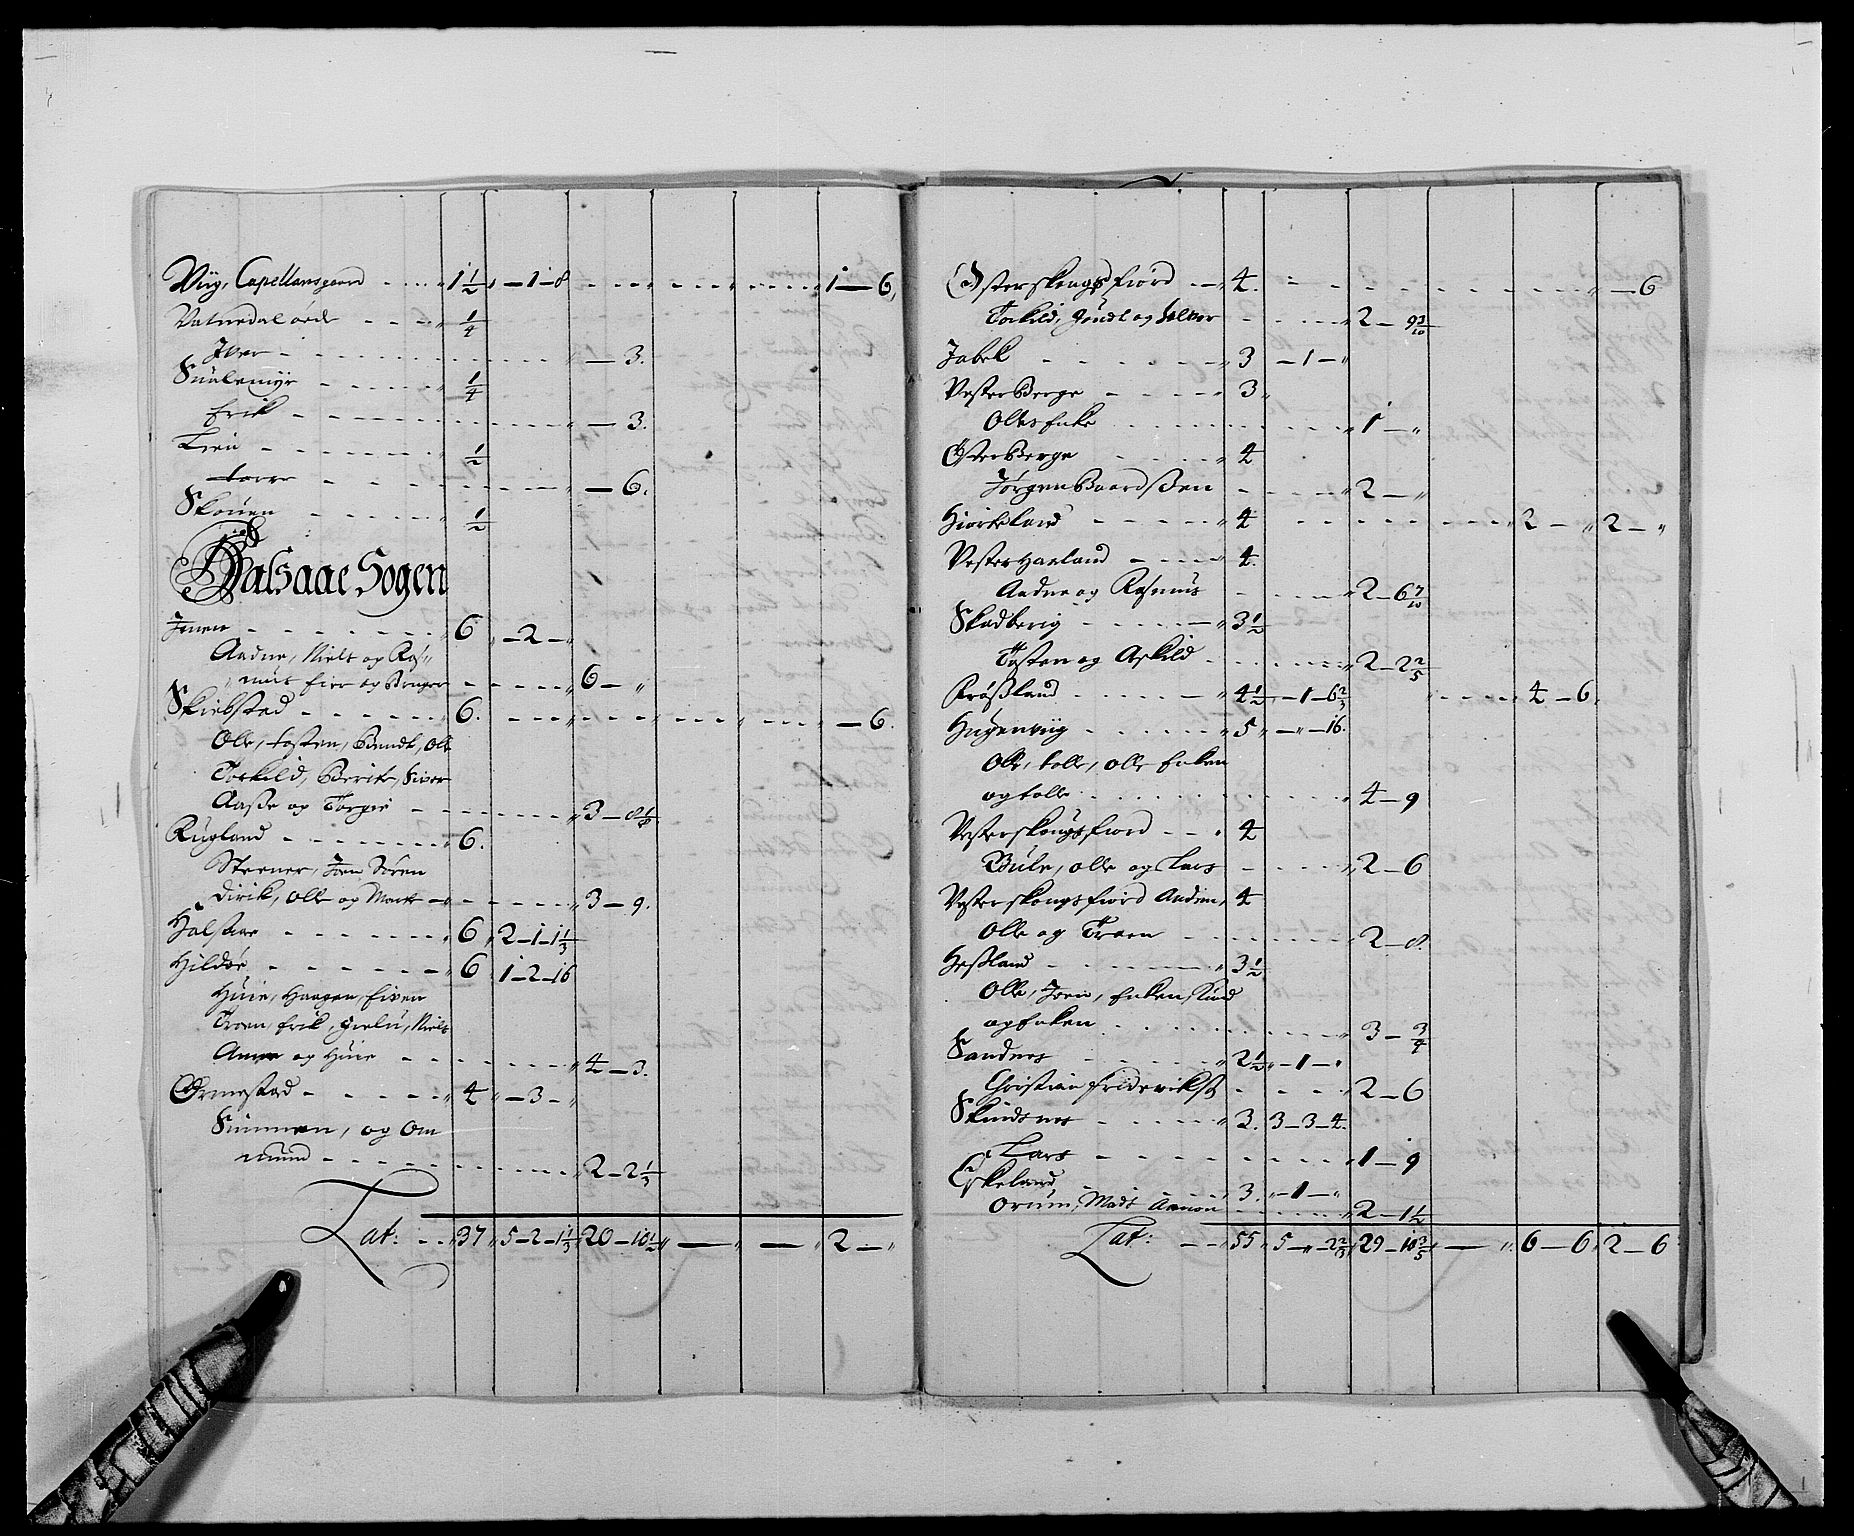 Viig, Capellansgaard 1 1/2 - 1 - 8 1 - 6
Vatnedal øede 1/4
Iver - 3.
1/4
Erik - 3.
Lien 1/2
- 6.
Skouen 1/2
Halsaae Sogen
6 - 2 -
Aadne, Niels og Ras
mus Eier og Bruger 6 -
Skiebstad 6. - 6.
Olle, Tosten, Berndt, Olle
Torkild, Berite, Siver
Aasse og Torgie 3 - 8 1/4
Rugland 6.
Steener, Joen Søren
Dirik, Olle og Marte 3 - 9.
Halsaae 6 2 - 1 - 1 1/3
Hildøe 6 1 - 2 - 16
Huie, Haagen, Siven
Troen, Erik, Niels
Anne og Huie 4 - 3.
Ormestad 4 - 3 -
Simmen, og Om
mund 2 - 2 1/3
Lat: 37 5 - 2 - 1 1/3 20 - 10 1/2 - - 2 -
Østerskongsfiord 4. - 6
Torkild, Gundl og Halvor 2 - 9 3/10
Jabek 3 - 1 -
Vester Berge 3
Olles Enke 1 -
Øster Berge 4
Jørgen Baardssen 2 -
Hiorteland 4 2 - 2 -
Vester Haaland 4.
Aadne og Rasmus 2 - 6 7/10
Skadberig 3 1/2
Tosten og Askild 2 - 2 2/5
Frøssland 4 1/2 - 1 - 6 2/3 4 - 6.
Hugenviig 5 - - 16.
Olle, Tolle, Olle Enken
og Tolle 4 - 9
Vesterskongsfiord 4
Bule, Olle og Lars 2 - 6
Vesterskongsfiord Anden, 4
Olle og Troen 2 - 8.
Hessland 3 1/2
Olle, Joen, Enken, Knud
og Enken 3 - 3/4
Sandnes 2 1/2 - 1 -
Christian Friderikss 2 - 6
Skindsnes 2. 3 - 3 - 4.
Lars 1 - 9
Eskeland 3. - 1 -
Orum, Mads Aanon 2 - 1 1/2
Lat: 55 5 - - 2 2/3 29 - 10 3/5 - 6 - 6 2 - 6